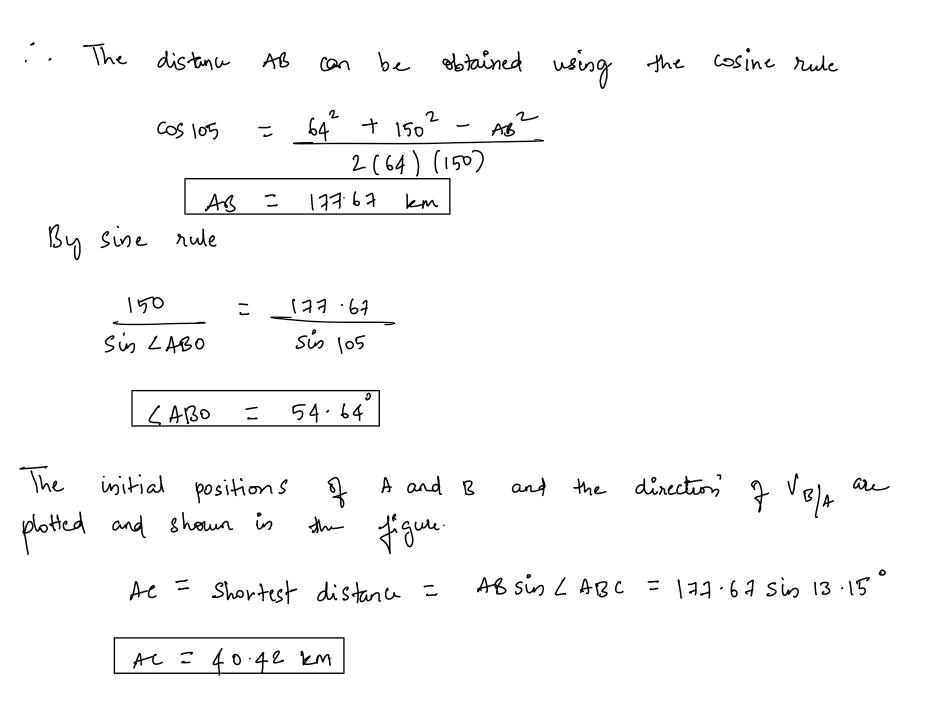 ∴ The distance AB can be obtained using the cosine rule
cos 105 = (64² + 150² - AB²) / (2(64)(150))
AB = 177.67 km
By sine rule
150 / sin ∠ABO = 177.67 / sin 105
∠ABO = 54.64°
The initial positions of A and B and the direction of V_B/A are
plotted and shown in the figure.
AC = Shortest distance = AB sin ∠ABC = 177.67 sin 13.15°
AC = 40.42 km